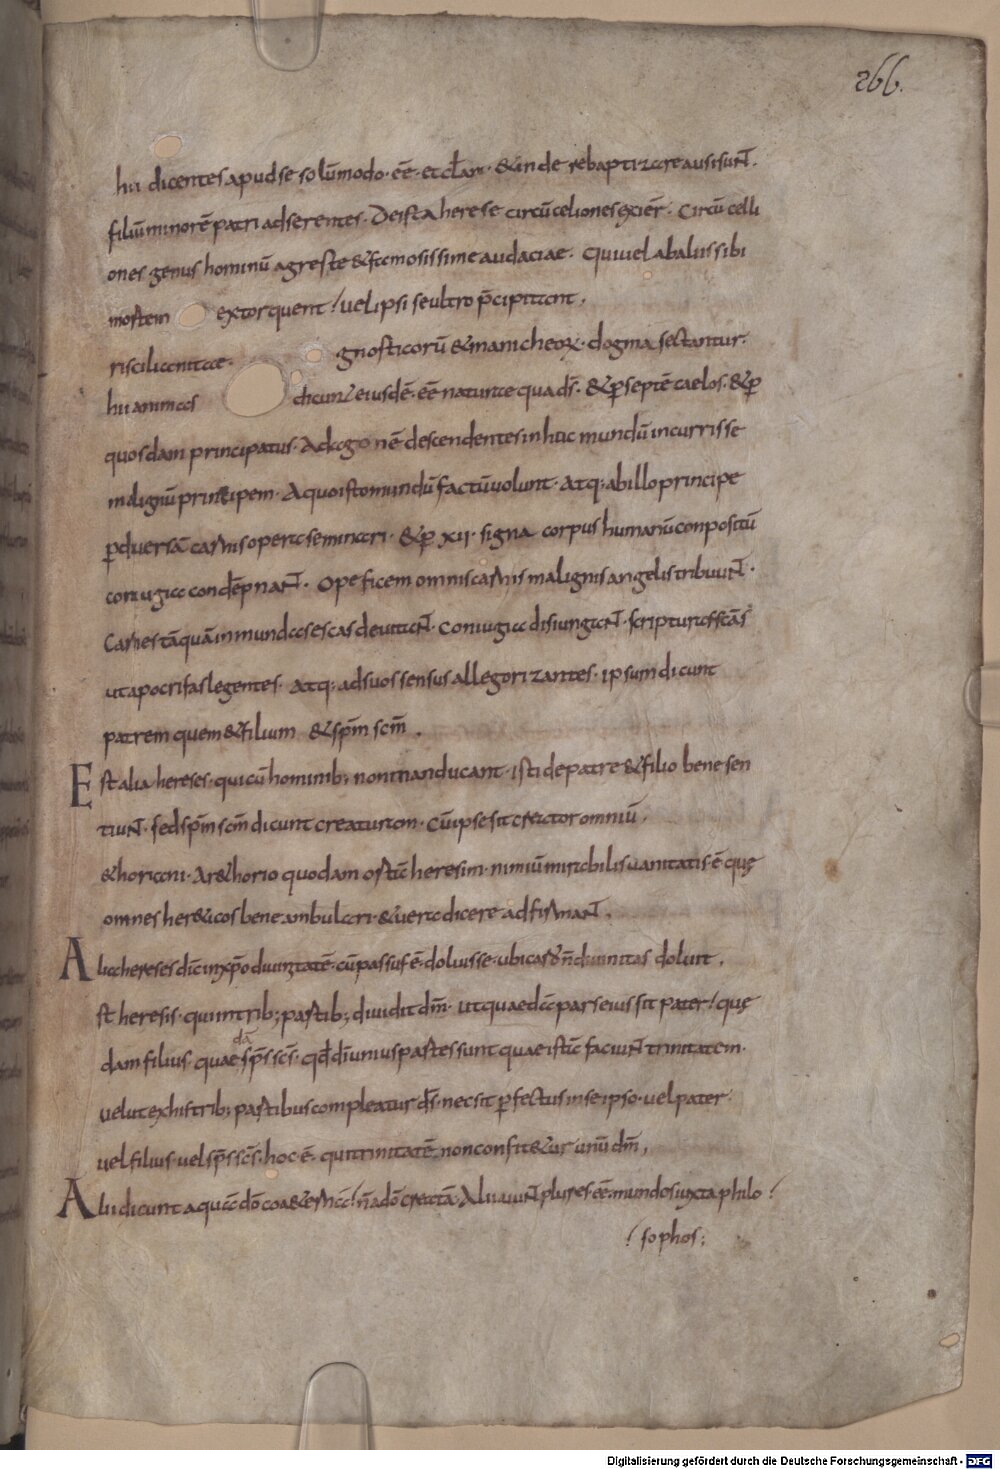 266.
hii dicentes apud se solũmodo · eẽ · &
inde rebaptizare ausi suNt ·
filiũ minorẽ patri adserentes · De ista herese circũceliones exier̃ · Circũcelli
ones genus hominũ agreste & famosissime audaciae · Qui vel ab aliis sibi
mortem extorquent / vel ipsi se ultro p̃cipitant ,
riscilianitae · gnosticorũ & manicheoꝝ · dogma sectantur ·
hii animas dicunt eiusdẽ · eẽ naturae qua ds̃ · & ꝑ septẽ caelos · & ꝑ
quosdam principatus · Ad agonẽ descendentes in hũc mundũ incurrisse
malignũ principem · A quo isto mundũ factũ volunt · Atq; ab illo principe
ꝑ diversã carnis opera seminari · & ꝑ xii · signa corpus humanũ conpositũ
coniugia condẽpnaNt · Opeficem omnis carnis malignis angelis tribuuNt ·
Carnes tãquã inmundas escas devitaNt · Coniugia disiungaNt · scripturas scãs
ut apocrifas legentes · Atq; ad suos sensus allegorizantes · ipsum dicunt
patrem quem & filium & sp̃m scm̃ .
Est alia hereses · qui cũ hominib; non manducant · isti de patre & filio bene sen
tiuNt · sed sp̃m scm̃ dicunt creaturam · Cũ ipse sit creator omniũ ,
&horiani · Ar&horio quodam ostũ heresim · nimiũ mirabilis vanitatis · ẽ quę
omnes her&icos bene ambulari · & vera dicere adfirmaNt ,
Alia hereses dic̃ in xp̃o divinitatẽ · cũ passus ẽ · doluisse · ubi caro n̄ divinitas doluit ,
st heresis · qui in trib; partib; dividit dm̃ · ut quaedã pars eius sit pater / quę
dam filius · quaedã sp̃s scs̃ · qđ dĩ unius partes sunt quae istã faciuNt trinitatem ·
velut ex his trib; partibus compleatur ds̃ · nec sit ꝑfectus in se ipso · vel pater ·
vel filius · vel sp̃s scs̃ · hoc · ẽ · qui trinitatẽ non confit&ur unũ dm̃ ,
Alii dicunt aquã dõ coa&ernã / n̄ a dõ creatã Alii aiuNt plures eẽ mundos iuxta philo /
/ sophos ;
Digitalisierung gefördert durch die Deutsche Forschungsgemeinschaft - DFG